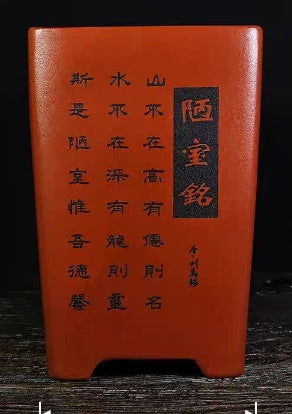 陋室銘
唐·刘禹锡
山不在高有僊則名
水不在深有龍則靈
斯是陋室惟吾德馨